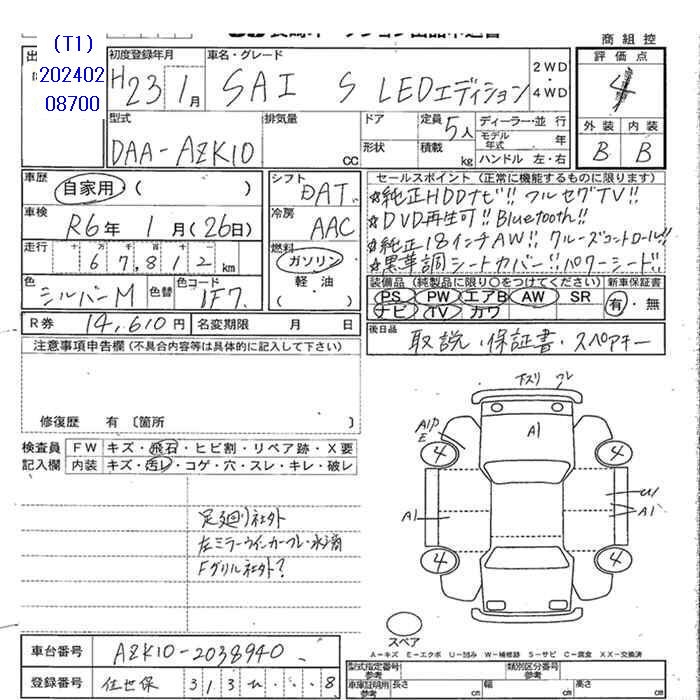 (T1)
202402
08700
商 組 控
初度登録年月
H23 1月
車名・グレード
SAI S LEDエディション
2WD
4WD
評 価 点
4
外 装 内 装
B B
型式
DAA-AZK10
排気量
CC
ドア
形状
定員 5人
積載 kg
ディーラー・並 行
モデル年式 年
ハンドル 左・右
車歴
自家用・( )
車検
R6年 1月(26日)
走行
十 万 千 百 十 一
6 7,8 1 2 km
色
シルバーM
色替
色コード
1F7
シフト
DAT
冷房
AAC
燃料
ガソリン
軽・油
( )
セールスポイント(正常に機能するものに限ります)
☆純正HDDナビ!! フルセグTV!!
☆DVD再生可!! Bluetooth!!
☆純正18インチAW!! クルーズコントロール!!
☆黒革調シートカバー!! パワーシート!!
装備品(純製品に限り〇をつけてください)
新車保証書
PS PW エアB AW SR
ナビ TV カワ
有・無
R券 14,610円
名変期限 月 日
後日品
取説・保証書・スペアキー
注意事項申告欄(不具合内容等は具体的に記入して下さい)
修復歴 有〔箇所 〕
検査員
記入欄
FW キズ・飛石・ヒビ割・リペア跡・X要
内装 キズ・汚レ・コゲ・穴・スレ・キレ・破レ
足廻り社外
左ミラーウインカー
Fグリル社外?
下スリ
A1
E
A1
4
4
A1
U1
A1
4
4
スペア
A-キズ E-エクボ U-凹み W-補修跡 S-サビ C-腐食 XX-交換済
車台番号
AZK10-2038940
登録番号
佐世保 313 ひ ・・・8
型式指定番号
参考
類別区分番号
参考
車庫証明用
参考
長さ cm
幅 cm
高さ cm